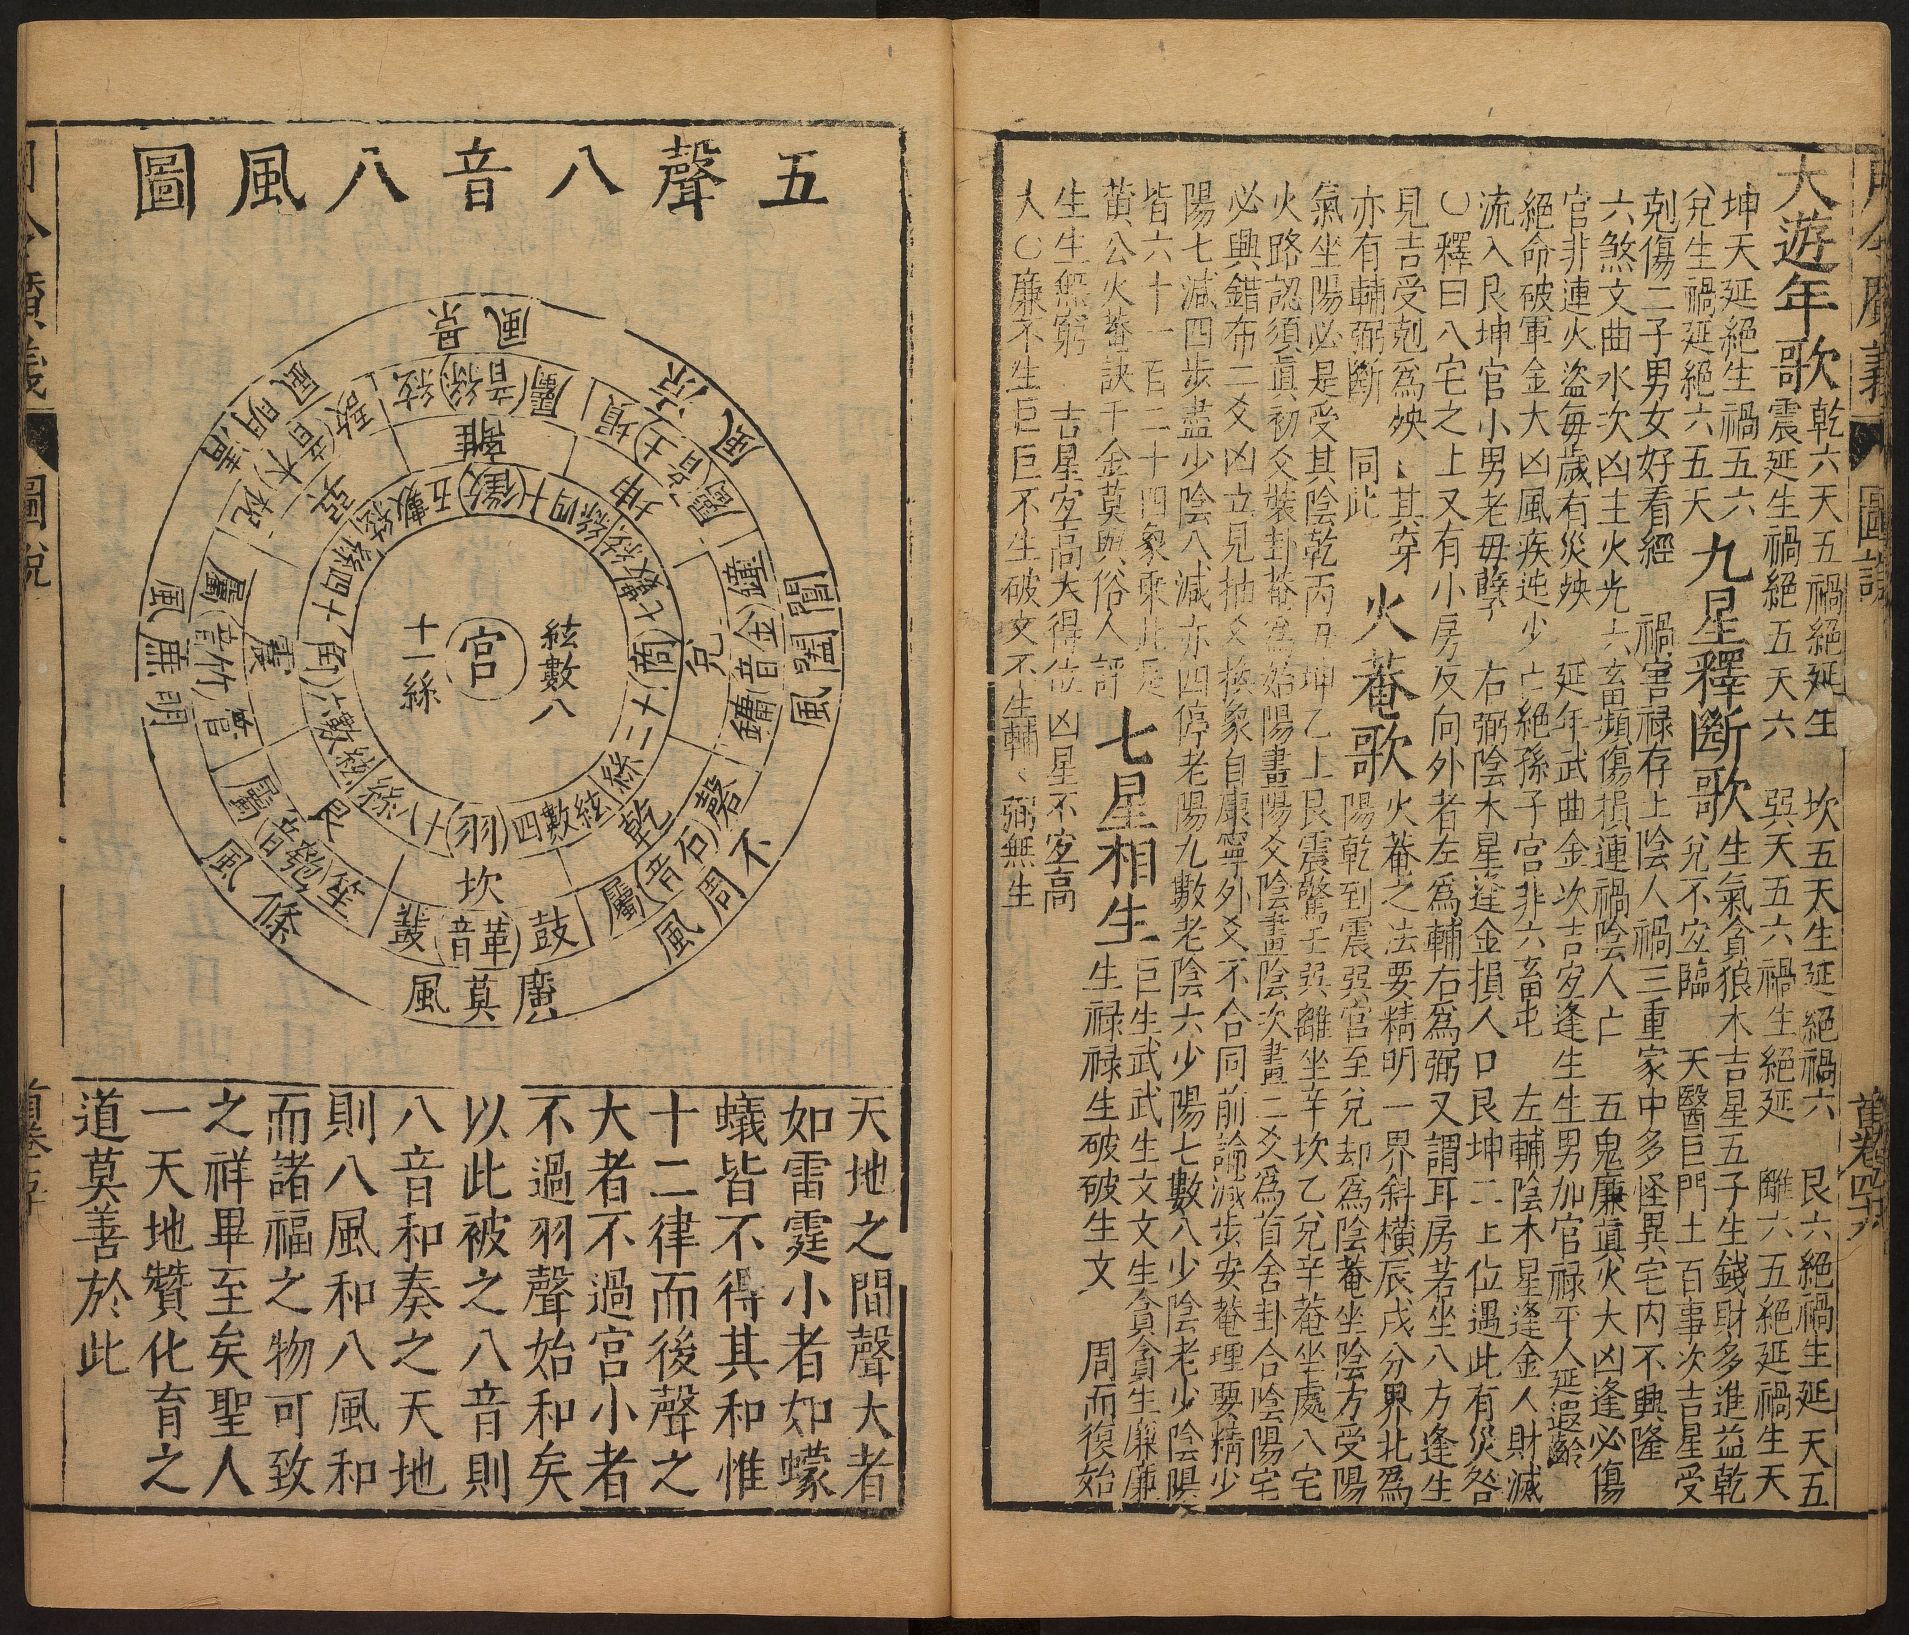 大遊年歌
乾六天五禍絕延生　坎五天生延絕禍六　艮六絕禍生延天五
震延生禍絕五天六　巽天五六禍生絕延　離六五絕延禍生天
坤天延絕生禍五六
兌生禍延絕六五天
九星釋斷歌
生氣貪狼木吉星五子生錢財多進益乾
兌不安臨　天醫巨門土百事次吉星受
剋傷二子男女好看經　禍害祿存土陰人禍三重家中多怪異宅內不興隆
六煞文曲水次凶主火光六畜頻傷損連禍陰人亡　五鬼廉眞火大凶逢必傷
官非連火盜每歲有災殃　延年武曲金坎吉安逢生生男加官祿平人延遐齡
絕命破軍金大凶風疾迍少亡絕孫子宮非六畜屯　左輔陰木星逢金人財減
流入艮坤官小男老母孽　右弼陰木星逢金損人口艮坤二上位遇此有災咎
〇釋曰八宅之上又有小房反向外者左爲輔右爲弼又謂耳房若坐八方逢生
見吉受剋爲殃其穿
亦有輔弼斷　同此
火菴歌
火菴之法要精明一界斜橫辰戌分界北爲
陽乾到震巽宮至兌却爲陰菴坐陰方受陽
氣坐陽必是受其陰乾丙丑坤乙上艮震驚壬巽離坐辛坎乙兌辛菴坐處八宅
火路認須眞初爻裝卦菴爲始陽畫陽爻陰畫陰次畫二爻爲首舍卦合陰陽宅
必興錯布二爻凶立見抽爻換象自康寧外爻不合同前論減步安菴理要精少
陽七減四步盡少陰八減亦四停老陽九數老陰六少陽七數八少陰老少陰陽
皆六十一百二十四象乘此是
黃公火菴訣千金莫與俗人評
七星相生
巨生武武生文文生貪貪生廉廉
生祿祿生破破生文　周而復始
生生無窮　吉星安高大得位凶星不安高
人〇廉不生巨巨不生破文不生輔弼無生
五聲八音八風圖
廣莫風
條風
明庶風
清明風
景風
凉風
閶闔風
不周風
坎
艮
震
巽
離
坤
兌
乾
鼓
革音
屬石音磬
屬匏音笙
屬竹音管
木音
屬絲音絃
屬土音塤
鐘金音鏞
宮
絃數八
十一絲
商
絃數七十二絲
角
絃數六十四絲
徵
絃數五十四絲
羽
絃數四十八絲
天地之間聲大者
如雷霆小者如蠓
蟻皆不得其和惟
十二律而後聲之
大者不過宮小者
不過羽聲始和矣
以此被之八音則
八音和奏之天地
則八風和八風和
而諸福之物可致
之祥畢至矣聖人
一天地贊化育之
道莫善於此
圖說